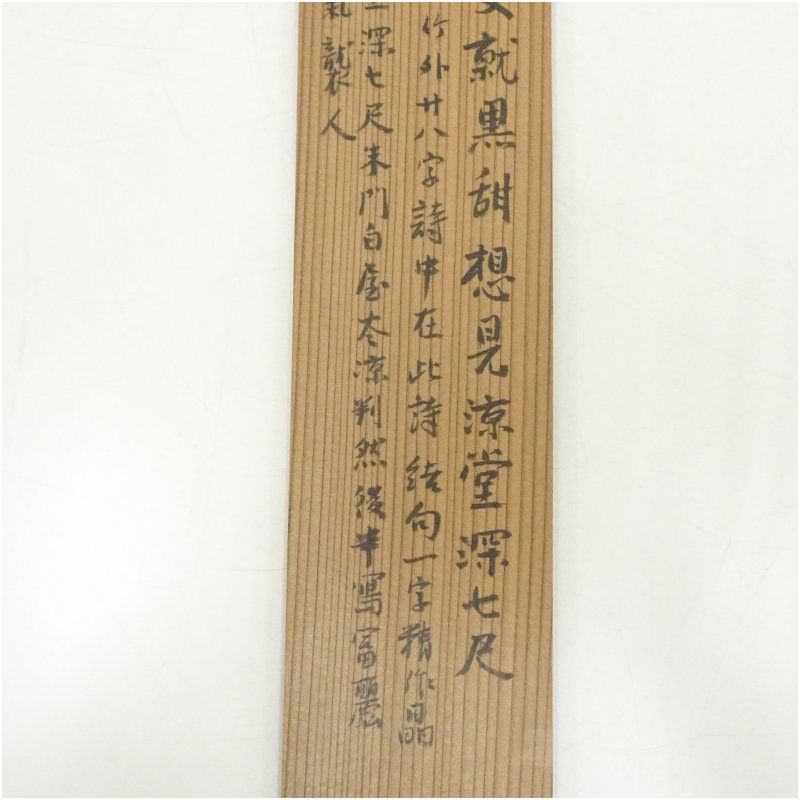 就黒甜想見涼堂深七尺
竹外廿八字詩中在此詩結句一字精作晶
深七尺朱門白屋冷涼判然後半寫富麗
氣襲人